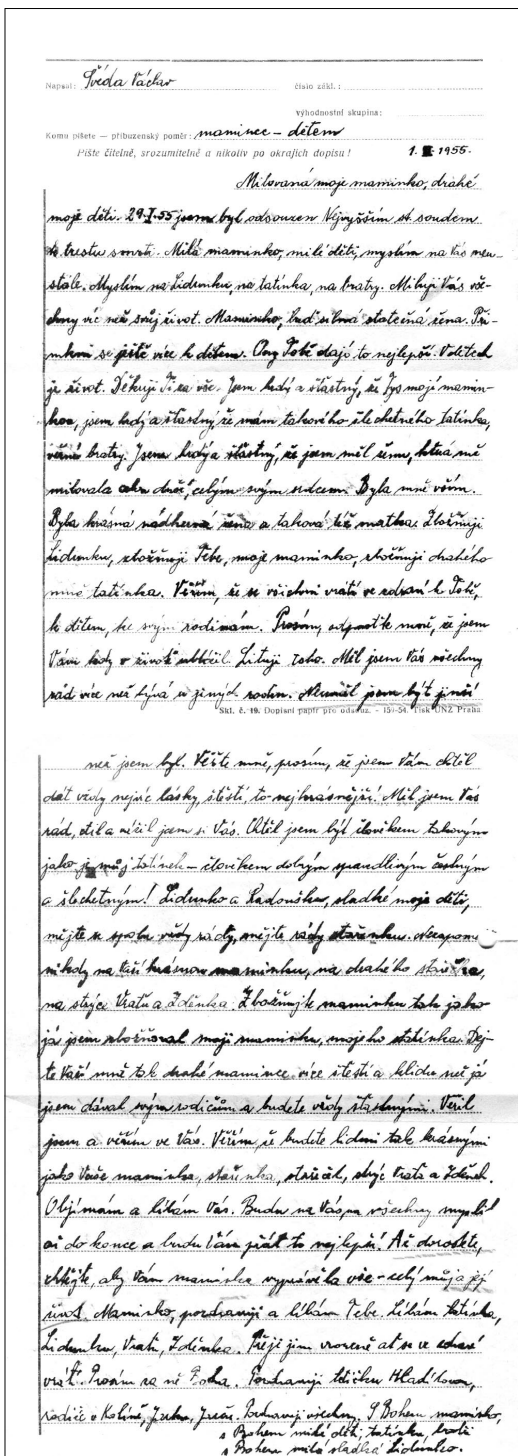 Napsal: Švéda Václav číslo zákl.:
výhodnostní skupina:
Komu píšete — příbuzenský poměr: mamince – dětem
Pište čitelně, srozumitelně a nikoliv po okrajích dopisu! 1. 1955.
Milovaná moje maminko, drahé
moje děti. 29.I.55 jsem byl odsouzen Nejvyšším st. soudem
k trestu smrti. Milá maminko, milé děti, myslím na Vás neu-
stále. Myslím na Lidunku, na tatínka, na bratry. Miluji Vás vše-
chny víc než svůj život. Maminko, buď silná statečná žena. Při-
mkni se ještě více k dětem. Ony Tobě dají to nejlepší. V dětech
je život. Děkuji Ti za vše. Jsem hrdý a šťastný, že Tys mojí mamin-
kou, jsem hrdý a šťastný že mám takového šlechetného tatínka,
věrné bratry. Jsem hrdý a šťastný, že jsem měl ženu, která mě
milovala celým svým srdcem. Byla mně vším.
Byla krásná nádherná žena a taková též matka. Zbožňuji
Lidunku, zbožňuji Tebe, moje maminko, zbožňuji drahého
mně tatínka. Věřím, že se všichni vrátí ve zdraví k Tobě,
k dětem, ke svým rodinám. Prosím, odpusťte mně, že jsem
Vám kdy v životě ublížil. Lituji toho. Měl jsem Vás všechny
rád více než bývá u jiných rodin. Neuměl jsem být jinší
Skl. č. 19. Dopisní papír pro odsouz. - 159-54. Tisk ÚNZ Praha
než jsem byl. Věřte mně, prosím, že jsem Vám chtěl
dát vždy nejvíc lásky, štěstí, to nejkrásnější. Měl jsem Vás
rád, ctil a vážil jsem si Vás. Chtěl jsem být člověkem takovým
jako je můj tatínek – člověkem dobrým spravedlivým čestným
a šlechetným! Lidunko a Radoušku, sladké moje děti,
mějte se spolu vždy rády, mějte rády stařenku. Nezapomeň
nikdy na Vaši krásnou maminku, na drahého stařečka,
na strýce Vraťu a Zdeňka. Zbožňujte maminku tak jako
já jsem zbožňoval moji maminku, mojeho tatínka. Dej-
te Vaší mně tak drahé mamince více štěstí a klidu než já
jsem dával svým rodičům a budete vždy šťastnými. Věřil
jsem a věřím ve Vás. Věřím, že budete lidmi tak krásnými
jako Vaše maminka, stařenka, stařeček, strýc Vraťa a Zdeněk.
Objímám a líbám Vás. Budu na Vás na všechny myslil
až do konce a budu Vám přát to nejlepší. Až dorostete,
chtějte, aby Vám maminka vyprávěla vše – celý můj a její
život. Maminko, pozdravuji a líbám Tebe. Líbám tatínka,
Lidunku, Vraťu, Zdeňka. Přeji jim vroucně ať se ve zdraví
vrátí. Prosím za ně Boha. Pozdravuji tetičku
rodiče v Kolíně, Pozdravuji všechny. S Bohem maminko,
s Bohem milé děti, tatínku, bratři
s Bohem milá sladká Lidunko.